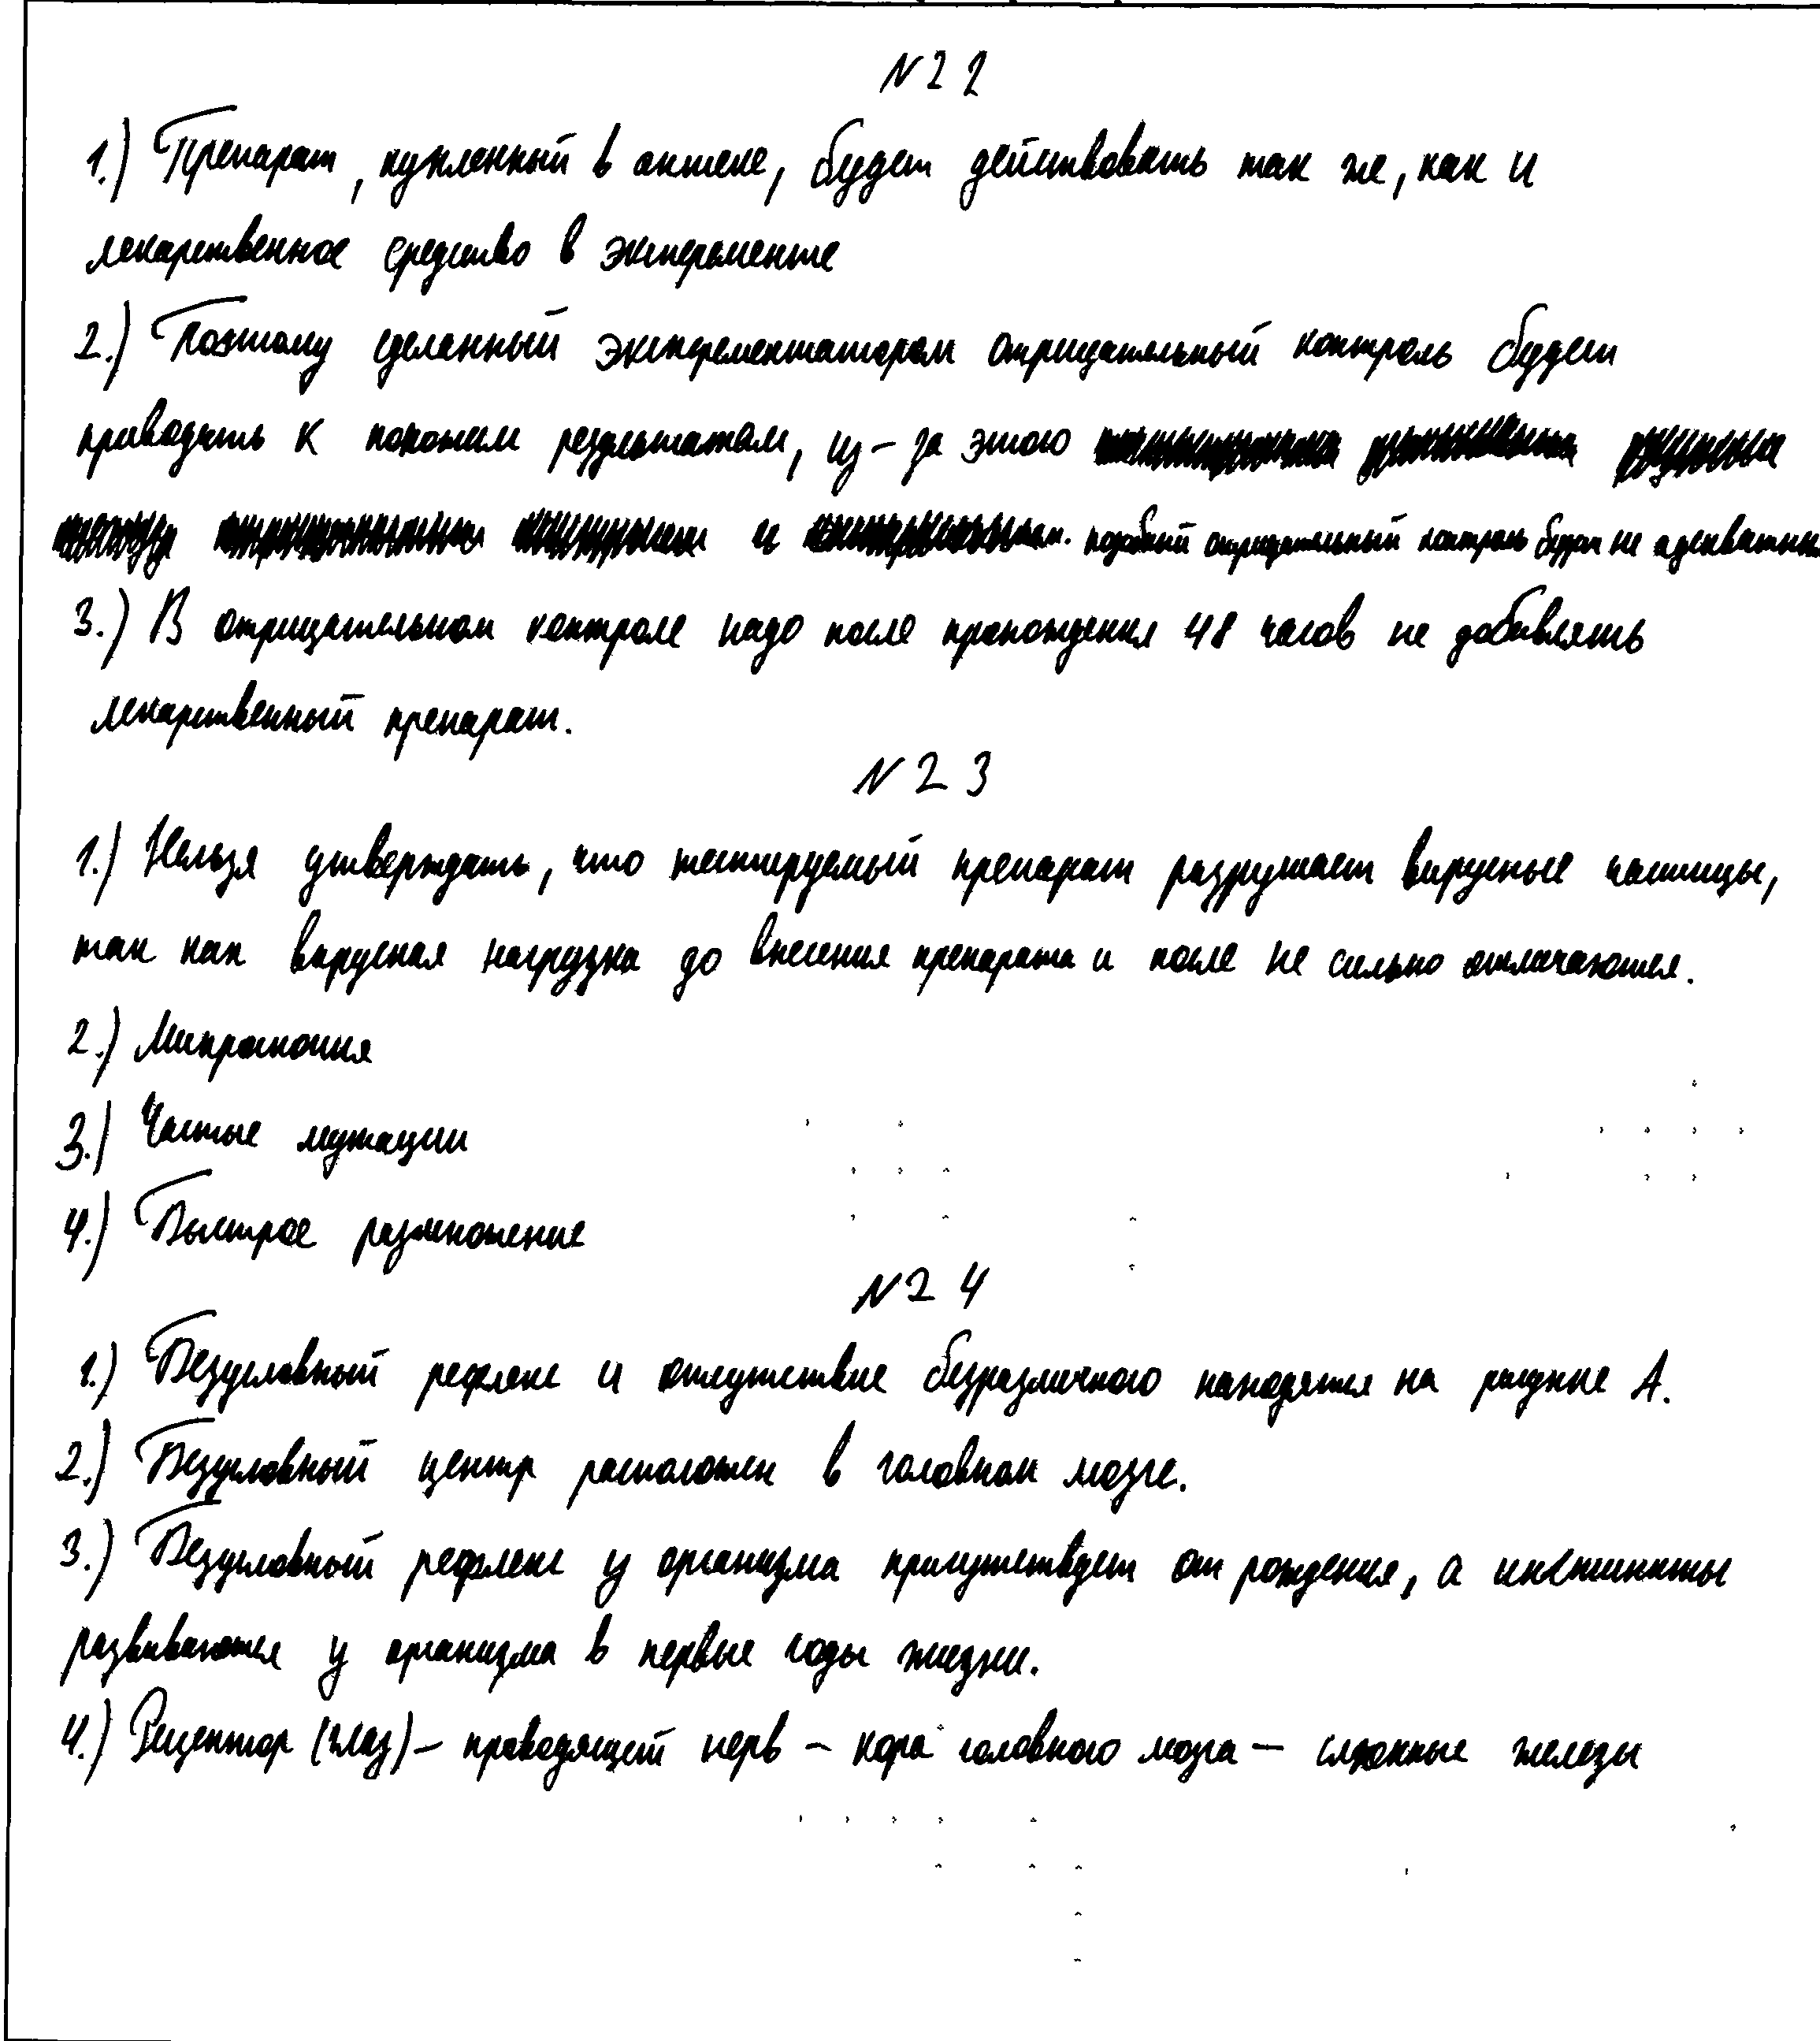 N22
1.) Препарат, купленный в аптеке, будет действовать так же, как и
лекарственное средство в эксперементе
2.) Поэтому сделанный эксперементатором отрицательный контроль будет
приводить к похожим результатам, из-за этого
и подобный отрицательный контроль будет не адекватным
3.) В отрицательном контроле надо после прохождения 48 часов не добавлять
лекарственный препарат.
N23
1.) Нельзя утверждать, что тестируемый препарат разрушает вирусные частицы,
так как вирусная нагрузка до внесения препарата и после не сильно отличаются.
2.) Микроскопия
3.) Частые мутации
4.) Быстрое размножение
N24
1.) Безусловный рефлекс и отсутствие безразличного находятся на рисунке А.
2.) Безусловный центр расположен в головном мозге.
3.) Безусловный рефлекс у организма присутствует от рождения, а инстинкты
развиваются у организма в первые годы жизни.
4.) Рецептор (глаз) – проводящий нерв – кора головного мозга – слюнные железы